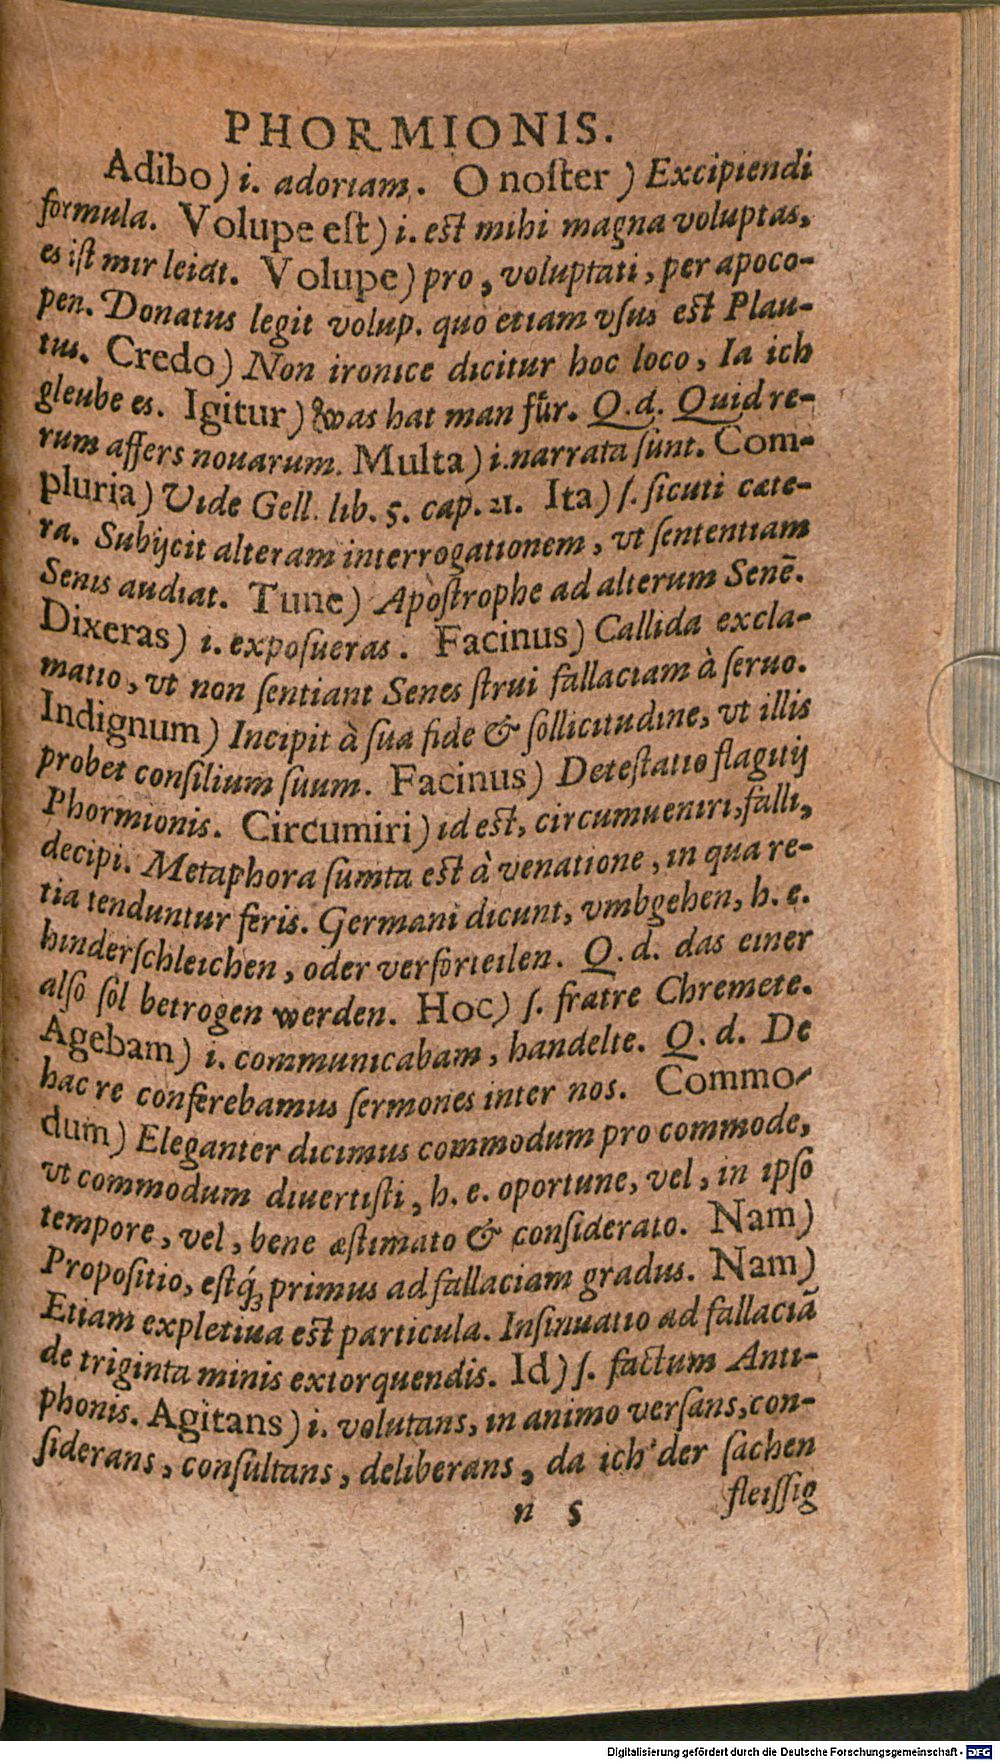 PHORMIONIS.
Adibo) i. adoriam. O noſter) Excipiendi
formula. Volupe eſt) i. eſt mihi magna voluptas,
es iſt mir leidt. Volupe) pro, voluptati, per apoco-
pen. Donatus legit volup. quo etiam vſus eſt Plau-
tus. Credo) Non ironice dicitur hoc loco, Ia ich
gleube es. Igitur) was hat man für. Q.d. Quid re-
rum affers nouarum. Multa) i. narrata ſunt. Com-
pluria) Vide Gell. lib. 5. cap. 21. Ita) ſ. ſicuti cæte-
ra. Subijcit alteram interrogationem, vt ſententiam
Senis audiat. Tune) Apoſtrophe ad alterum Senē.
Dixeras) i. expoſueras. Facinus) Callida excla-
matio, vt non ſentiant Senes ſtrui fallaciam à ſeruo.
Indignum) Incipit à ſua fide & ſollicitudine, vt illis
probet conſilium ſuum. Facinus) Deteſtatio flagitij
Phormionis. Circumiri) id eſt, circumueniri, falli,
decipi. Metaphora ſumta eſt à venatione, in qua re-
tia tenduntur feris. Germani dicunt, vmbgehen, h. e.
hinderſchleichen, oder verforteilen. Q. d. das einer
alſo ſol betrogen werden. Hoc) ſ. fratre Chremete.
Agebam) i. communicabam, handelte. Q. d. De
hac re conferebamus ſermones inter nos. Commo-
dum) Eleganter dicimus commodum pro commode,
vt commodum diuertiſti, h. e. oportune, vel, in ipſo
tempore, vel, bene æſtimato & conſiderato. Nam)
Propoſitio, eſtq́ꝫ primus ad fallaciam gradus. Nam)
Etiam expletiua eſt particula. Inſinuatio ad fallaciā
de triginta minis extorquendis. Id) ſ. factum Anti-
phonis. Agitans) i. volutans, in animo verſans, con-
ſiderans, conſultans, deliberans, da ich der ſachen
n 5 fleiſſig
Digitalisierung gefördert durch die Deutsche Forschungsgemeinschaft - DFG